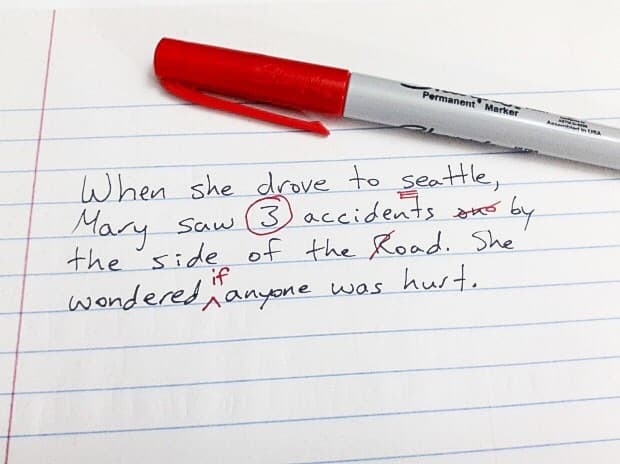 Permanent Marker
Assembled in USA
When she drove to seattle,
Mary saw 3 accidents by
the side of the Road. She
wondered if anyone was hurt.